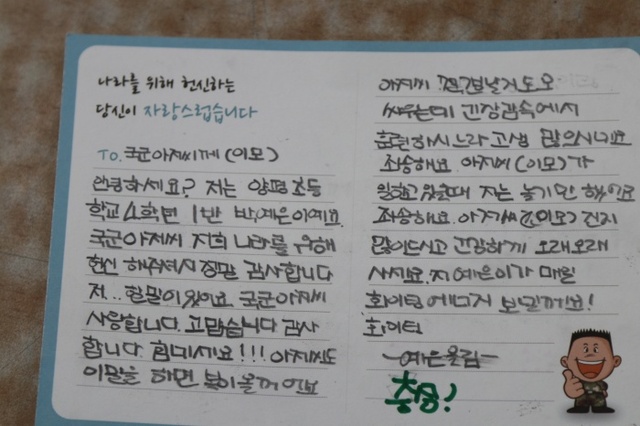 나라를 위해 헌신하는
당신이 자랑스럽습니다
TO. 국군아저씨께 (이모)
안녕하세요? 저는 양평초등
학교 4학년 1반 박예은이에요.
국군아저씨 저희 나라를 위해
헌신 해주셔서 정말 감사합니다
저... 할말이 있어요. 국군아저씨
사랑합니다. 고맙습니다 감사
합니다 힘내세요!!! 아저씨도
이말을 하면 힘이올꺼 에요
아저씨
싸우는데 긴장감속에서
훈련하시느라 고생 많으시네요
죄송해요. 아저씨(이모)가
일하고 있을때 저는 놀기만 했어요
죄송해요. 아저씨(이모) 진지
많이드시고 건강하게 오래오래
사세요. 저 예은이가 매일
화이팅 에너지 보낼께요!
화이팅
-예은올림-
충성!